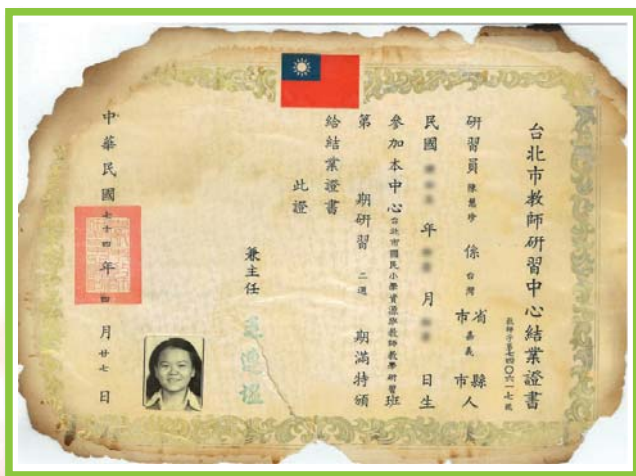 台北市教師研習中心結業證書
教師字第七四〇六一七號
研習員陳慧珍係台灣省嘉義縣
市市人
民國年月日生
參加本中心台北市國民小學資源班教師教學研習班
第期研習二週期滿特頒
給結業證書
此證
兼主任
中華民國七十四年四月廿七日